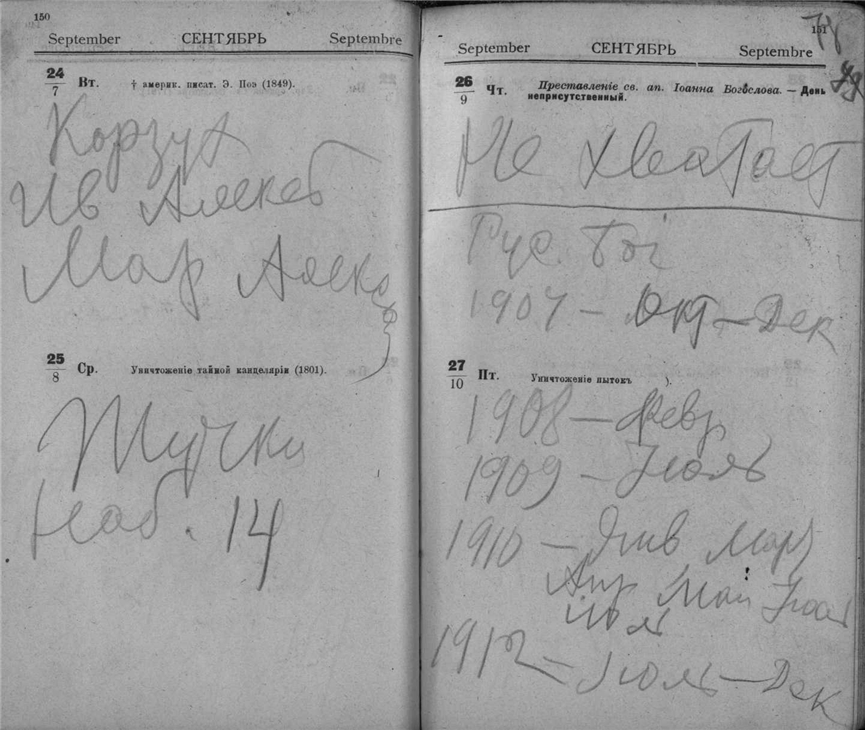 150
September СЕНТЯБРЬ Septembre
24
7 Вт. † америк. писат. Э. Поэ (1849).
Корзух
Ив Алекс
Мар Алекс
25
8 Ср. Уничтоженіе тайной канцеляріи (1801).
Жучки
Наб. 14
151
78
79
September СЕНТЯБРЬ Septembre
26
9 Чт. Преставленіе св. ап. Іоанна Богослова. — День
неприсутственный.
Не хватает
Рус. Бог
1907 — Окт — Дек
27
10 Пт. Уничтоженіе пытокъ ).
1908 — Февр
1909 — Июль
1910 — Янв Март
Апр Май Июн
Июл
1912 — Июль — Дек